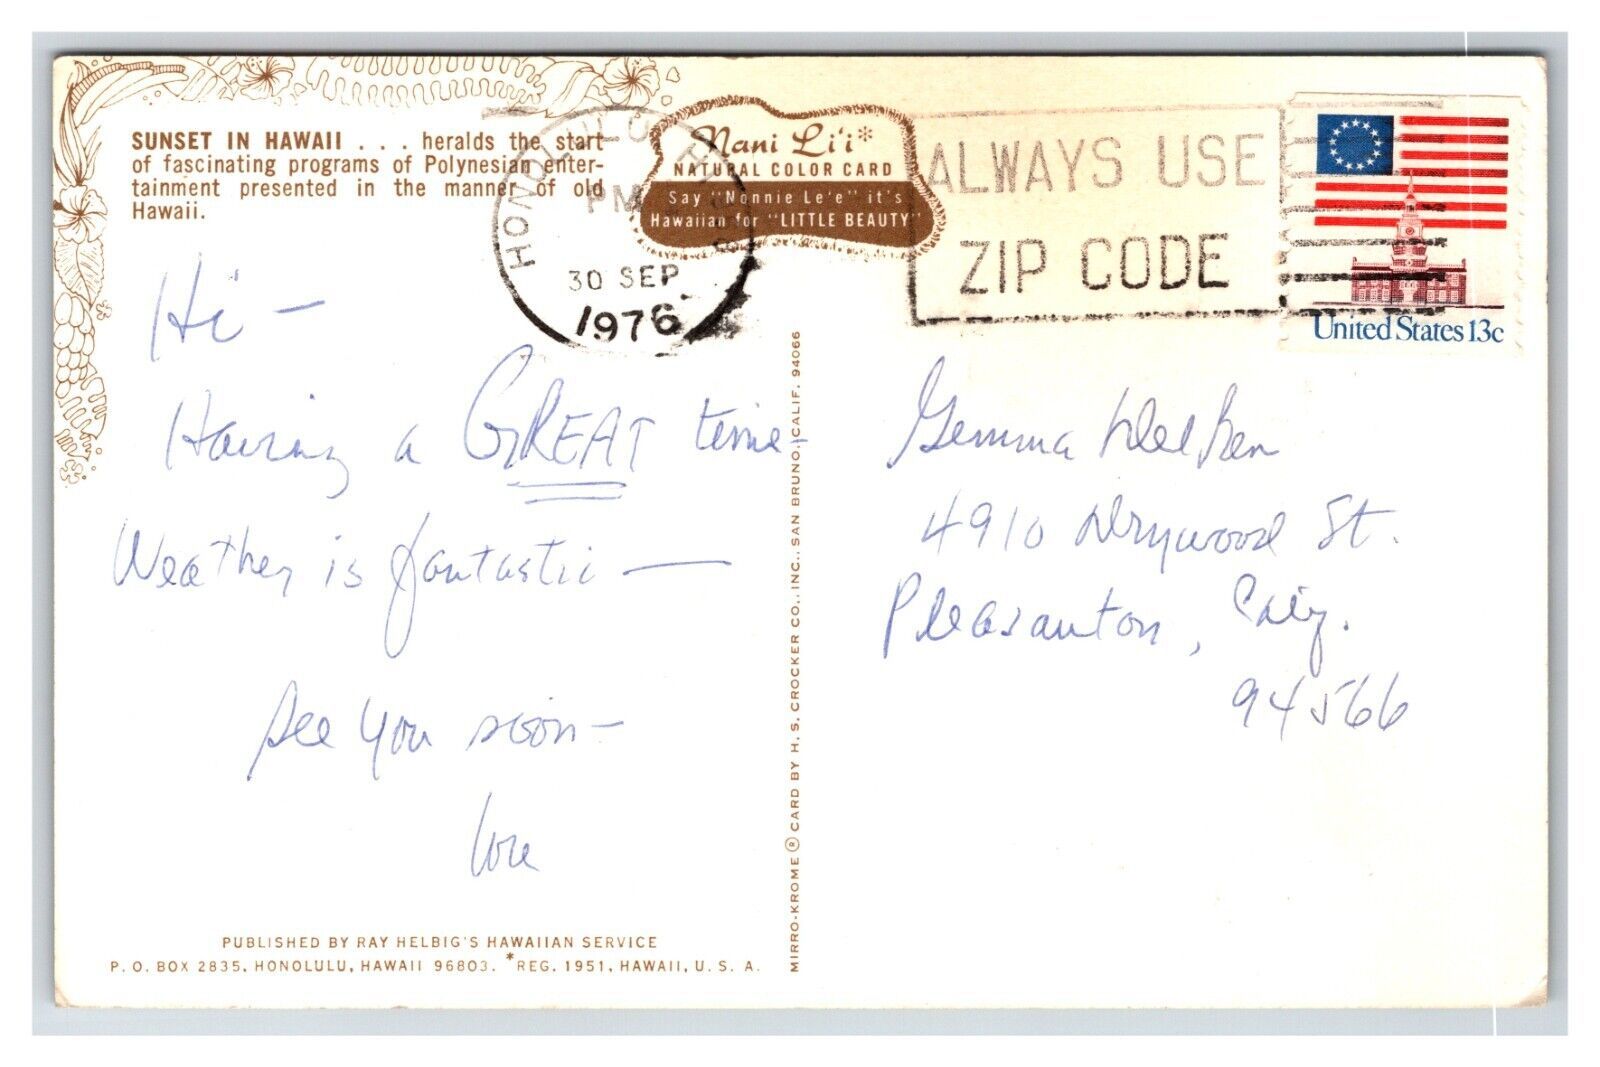 SUNSET IN HAWAII . . . heralds the start
of fascinating programs of Polynesian enter-
tainment presented in the manner of old
Hawaii.
Nani Li'i*
NATURAL COLOR CARD
Say "Nonnie Le'e" it's
Hawaiian for "LITTLE BEAUTY"
HONOLULU HI
PM
30 SEP
1976
ALWAYS USE
ZIP CODE
United States 13c
Hi —
Having a GREAT time -
Weather is fantastic —
See you soon —
Love
Gemma
4910 Drywood St.
Pleasanton, Calif.
94566
MIRRO-KROME ® CARD BY H. S. CROCKER CO., INC., SAN BRUNO, CALIF. 94066
PUBLISHED BY RAY HELBIG'S HAWAIIAN SERVICE
P. O. BOX 2835, HONOLULU, HAWAII 96803. *REG. 1951, HAWAII, U. S. A.